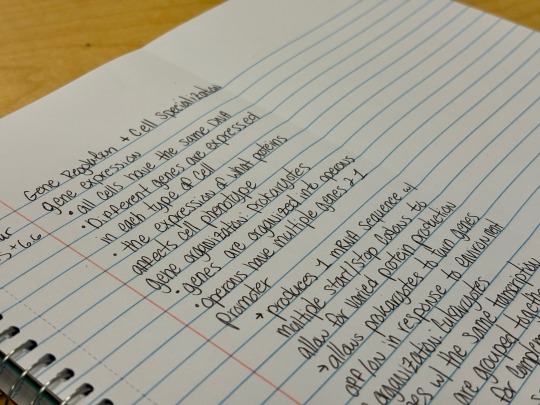 Gene Regulation + Cell Specialization
gene expression
• All cells have the same DNA
• Different genes are expressed
in each type of cell
• the expression of what proteins
affects cell phenotype
gene organization: prokaryotes
• genes are organized into operons
• operons have multiple genes & 1
promoter
→ produces 1 mRNA sequence w/
multiple start/stop codons to
allow for varied protein production
→ allows prokaryotes to turn genes
off/on in response to environment
organization: Eukaryotes
w/ the same transcription
are grouped together
for